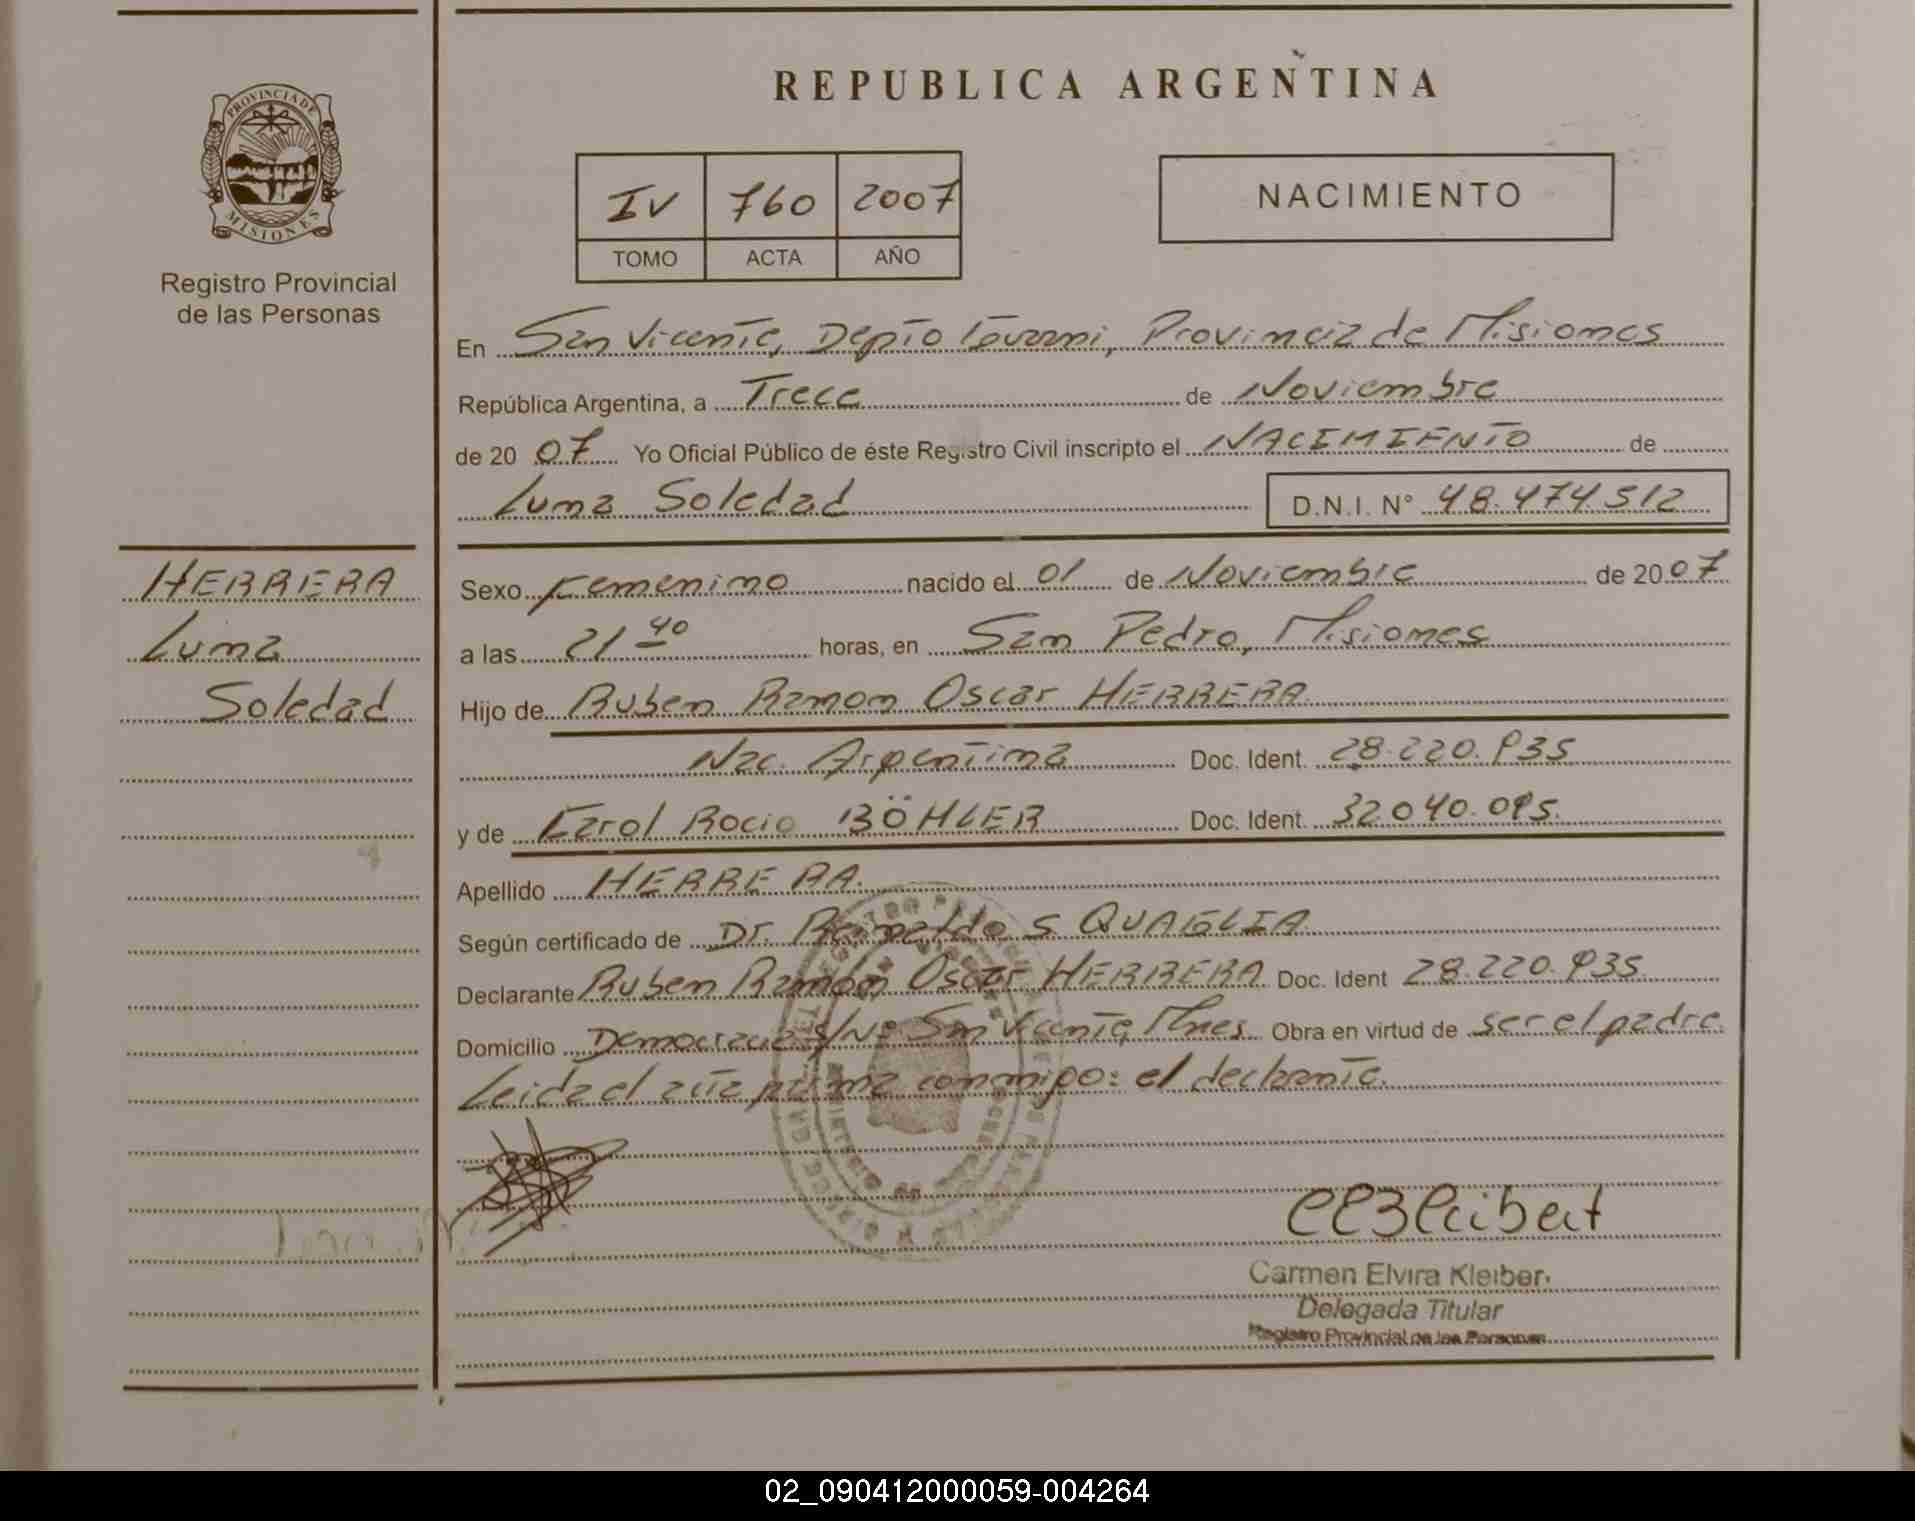 PROVINCIA DE
MISIONES
Registro Provincial
de las Personas
REPUBLICA ARGENTINA
IV 760 2007
TOMO ACTA AÑO
NACIMIENTO
En San Vicente, Depto Guarani, Provincia de Misiones
República Argentina, a Trece de Noviembre
de 2007 Yo Oficial Público de éste Registro Civil inscripto el NACIMIENTO de
Luma Soledad D.N.I. N° 48.474.512
HERRERA
Luma
Soledad
Sexo Femenino nacido el 01 de Noviembre de 2007
a las 21 40 horas, en San Pedro, Misiones
Hijo de Ruben Ramon Oscar HERRERA
Nac. Argentina Doc. Ident. 28.220.935
y de Karol Rocio BÖHLER Doc. Ident. 32.040.095.
Apellido HERRERA.
Según certificado de Dr. Reinaldo S QUAGLIA
Declarante Ruben Ramon Oscar HERRERA Doc. Ident 28.220.935
Domicilio Democracia s/Nº San Vicente, Mnes. Obra en virtud de ser el padre.
Leida el acta firma conmigo: el declarante.
Carmen Elvira Kleiber
Delegada Titular
Registro Provincial de las Personas
02_090412000059-004264